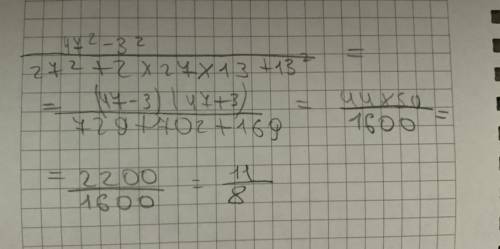 47² - 3²
27² + 2 × 27 × 13 + 13² =
= (47-3) (47+3)
729 + 702 + 169 = 44 × 50
1600 =
= 2200
1600 = 11
8